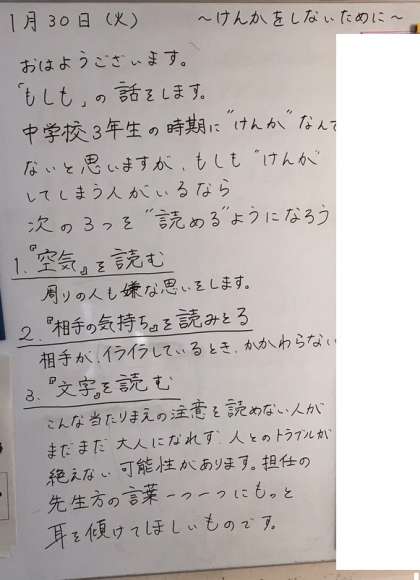 1月30日(火) ～けんかをしないために～
おはようございます。
「もしも」の話をします。
中学校3年生の時期に"けんか"なんて
ないと思いますが、もしも"けんか"
してしまう人がいるなら
次の3つを"読める"ようになろう
1.『空気』を読む
周りの人も嫌な思いをします。
2.『相手の気持ち』を読みとる
相手が、イライラしているとき、かかわらない
3.『文字』を読む
こんな当たりまえの注意を読めない人が
まだまだ大人になれず、人とのトラブルが
絶えない可能性があります。担任の
先生方の言葉一つ一つにもっと
耳を傾けてほしいものです。